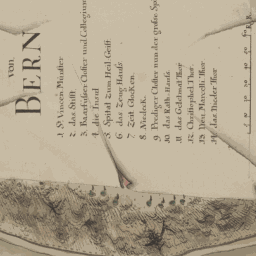 von
BERN
1 St Vincen Münster
2. das Stifft
3. Baarfüsser Closter und Collegium
4. die Insul
5 Spital Zum Heil. Geist
6 das Zeug Hauß
7 Zeit Glocken.
8 Nideck.
9. Prediger Closter nun der große Sp
10 das Rath Hauß
11 das Golatmat Thor
12. Christophel Thor.
13 Neu Marcelli Thor
14 das Nieder Thor